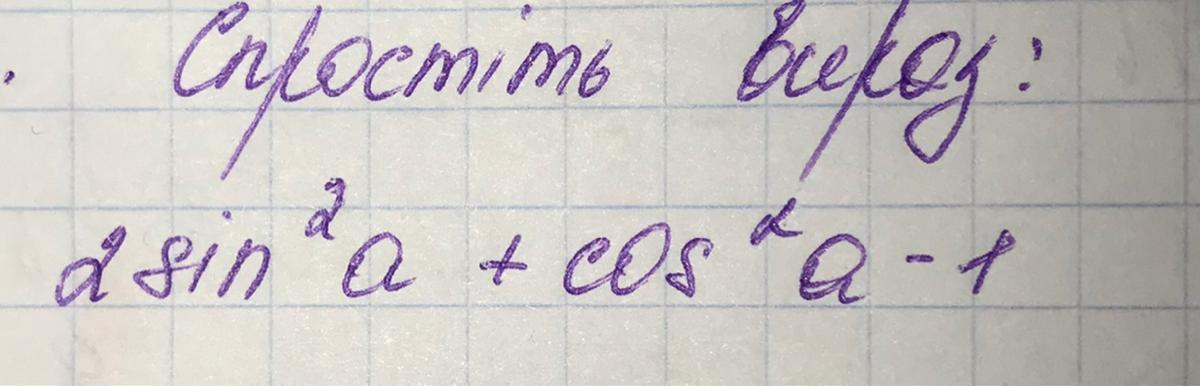 Спростіть вираз:
2 sin²a + cos²a - 1